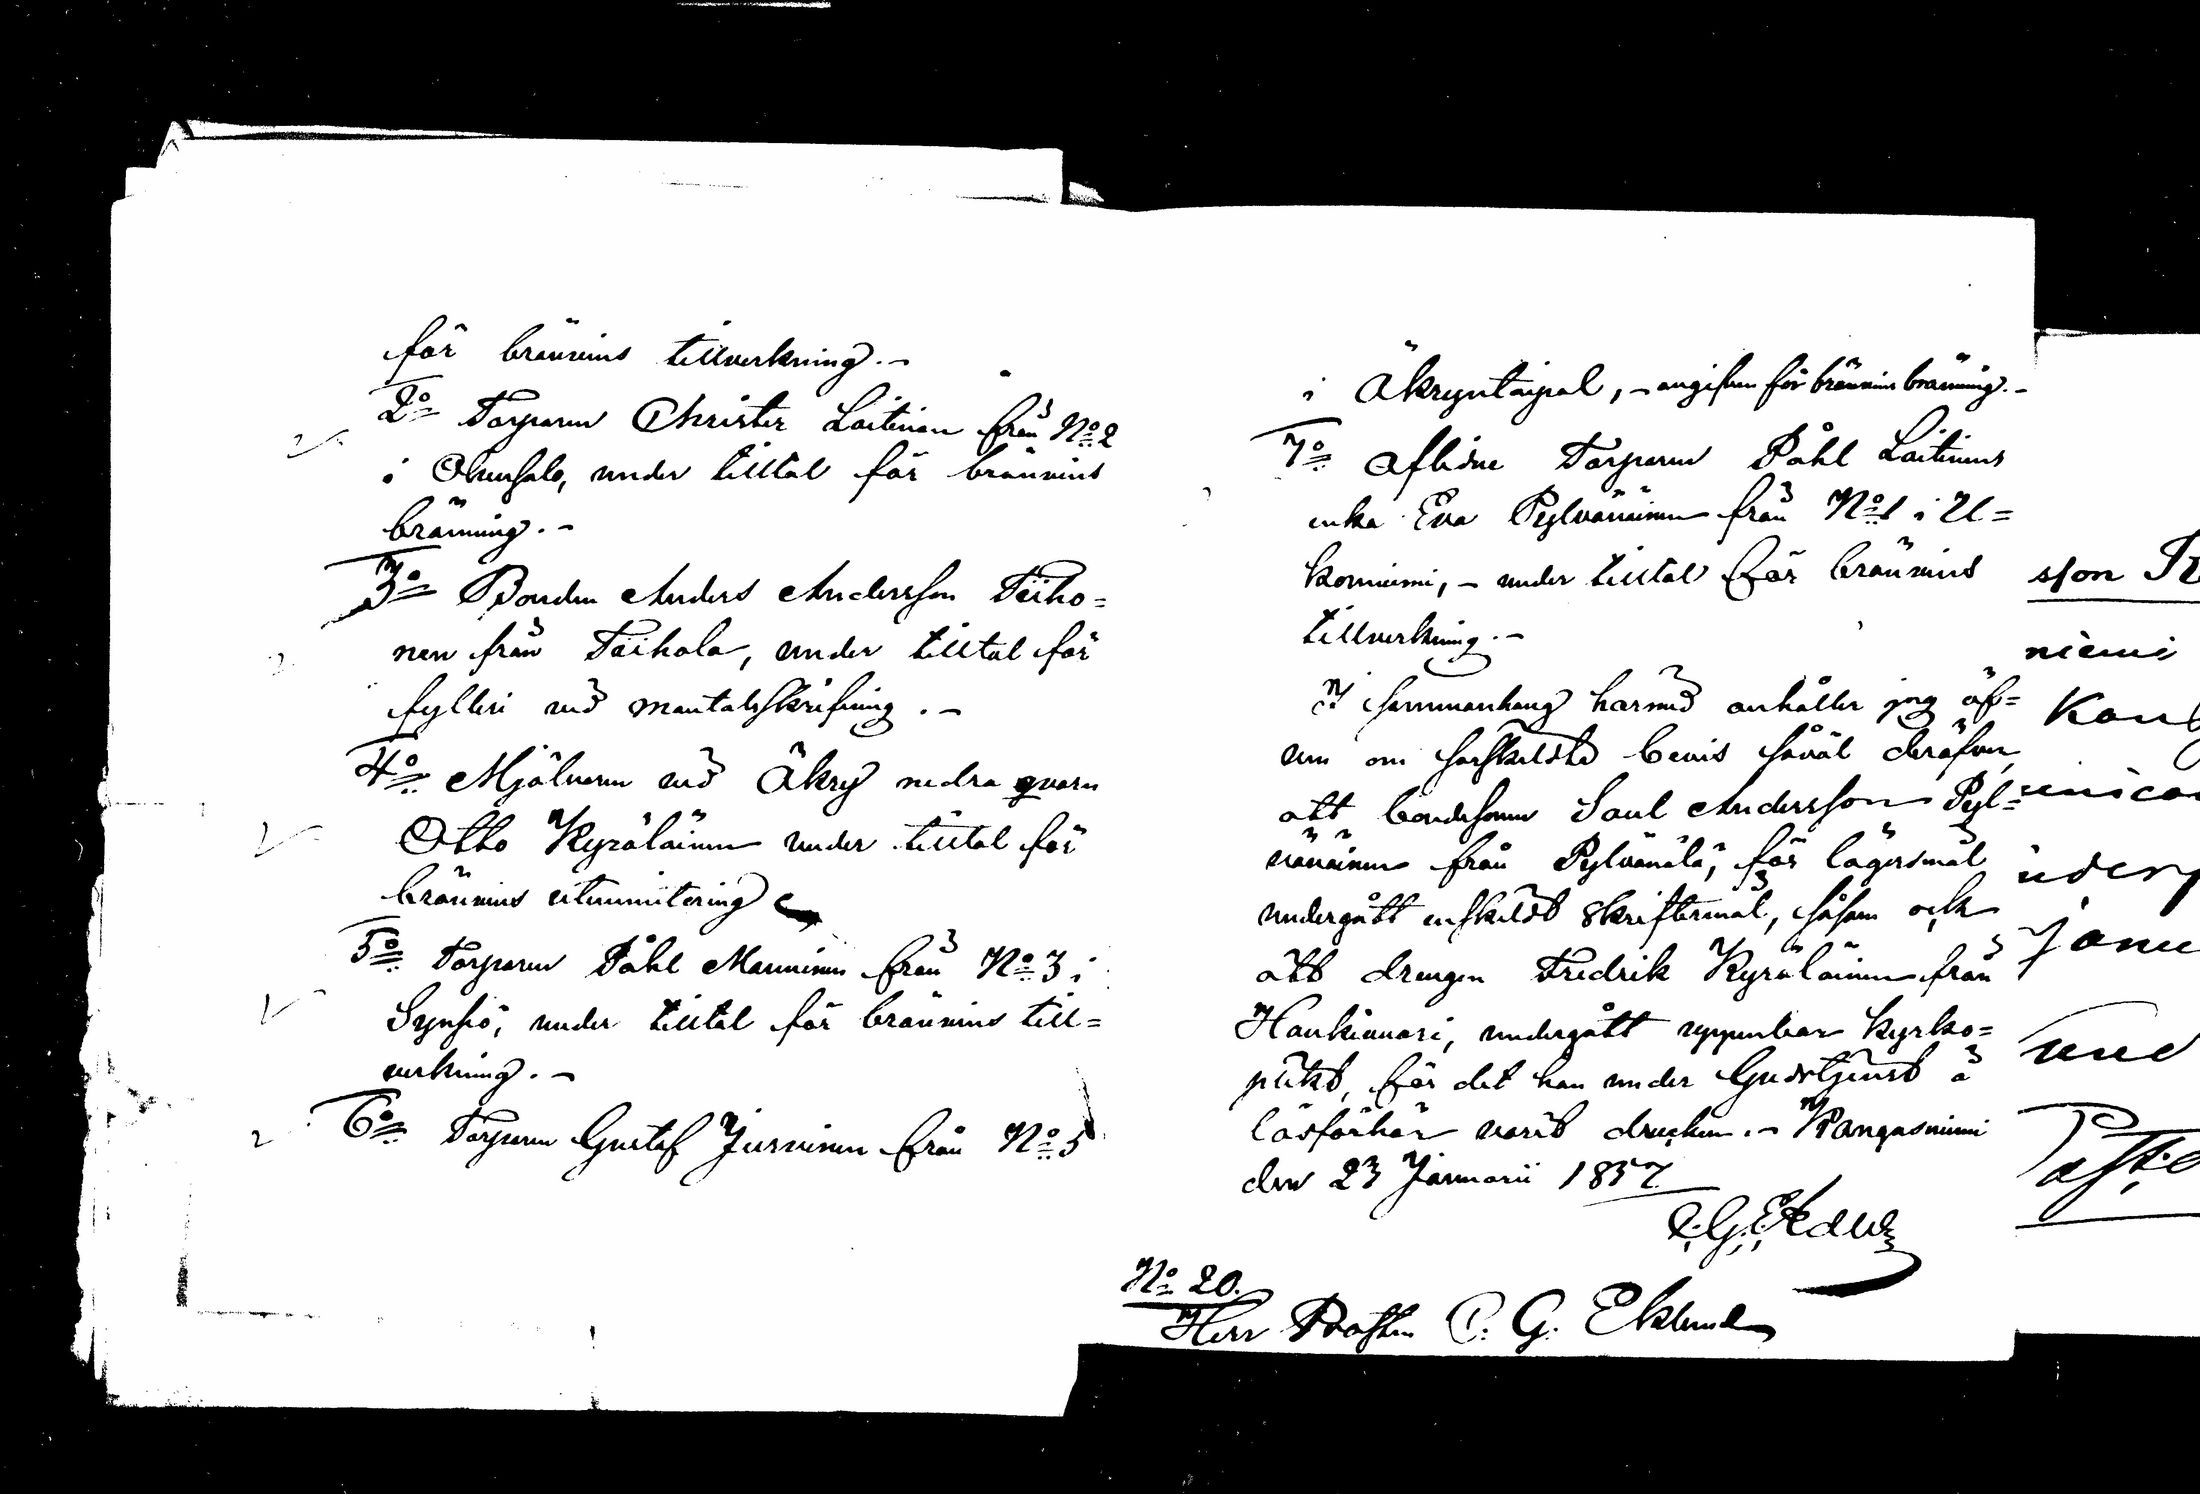 för bränvins tillverkning.-
2o Torparen Christer Laitinen från No 2
i Ohensalo, under tilltal för bränvins
bränning.-
3o Bonden Anders Andersson Teiho=
nen från Teihola, under tilltal för
fylleri vid mantalsskrifning.-
4o Mjölnaren vid Äkry nedra qvarn
Otto Kyröläinen under tilltal för
bränvins utminutering
5o Torparen Påhl Manninen från No 3 i
Synsiö, under tilltal för bränvins till=
verkning.-
6o Torparen Gustaf Jurvinen från No 5
i Äkryntaipal, - angifven för bränvins bränning.-
7o Aflidne Torparen Påhl Laitinens
enka Eva Pylvänäinen från No 1 i U=
konniemi, - under tilltal för bränvins
tillverkning.-
I sammanhang härmed anhåller jag äf=
ven om särskildt bevis såväl deröfver,
att bondesonen Saul Andersson Pyl=
vänäinen från Pylvänälä, för lägersmål
undergått enskildt skriftermål, såsom ock
att drengen Fredrik Kyröläinen från
Hankivuori, undergått uppenbar kyrko=
plikt, för det han under Gudstjenst å
läsförhör varit drucken.- Kangasniemi
den 23 Januarii 1857
C. G. Eklund
No 20.
Herr Prosten C. G. Eklund
sson
niemi